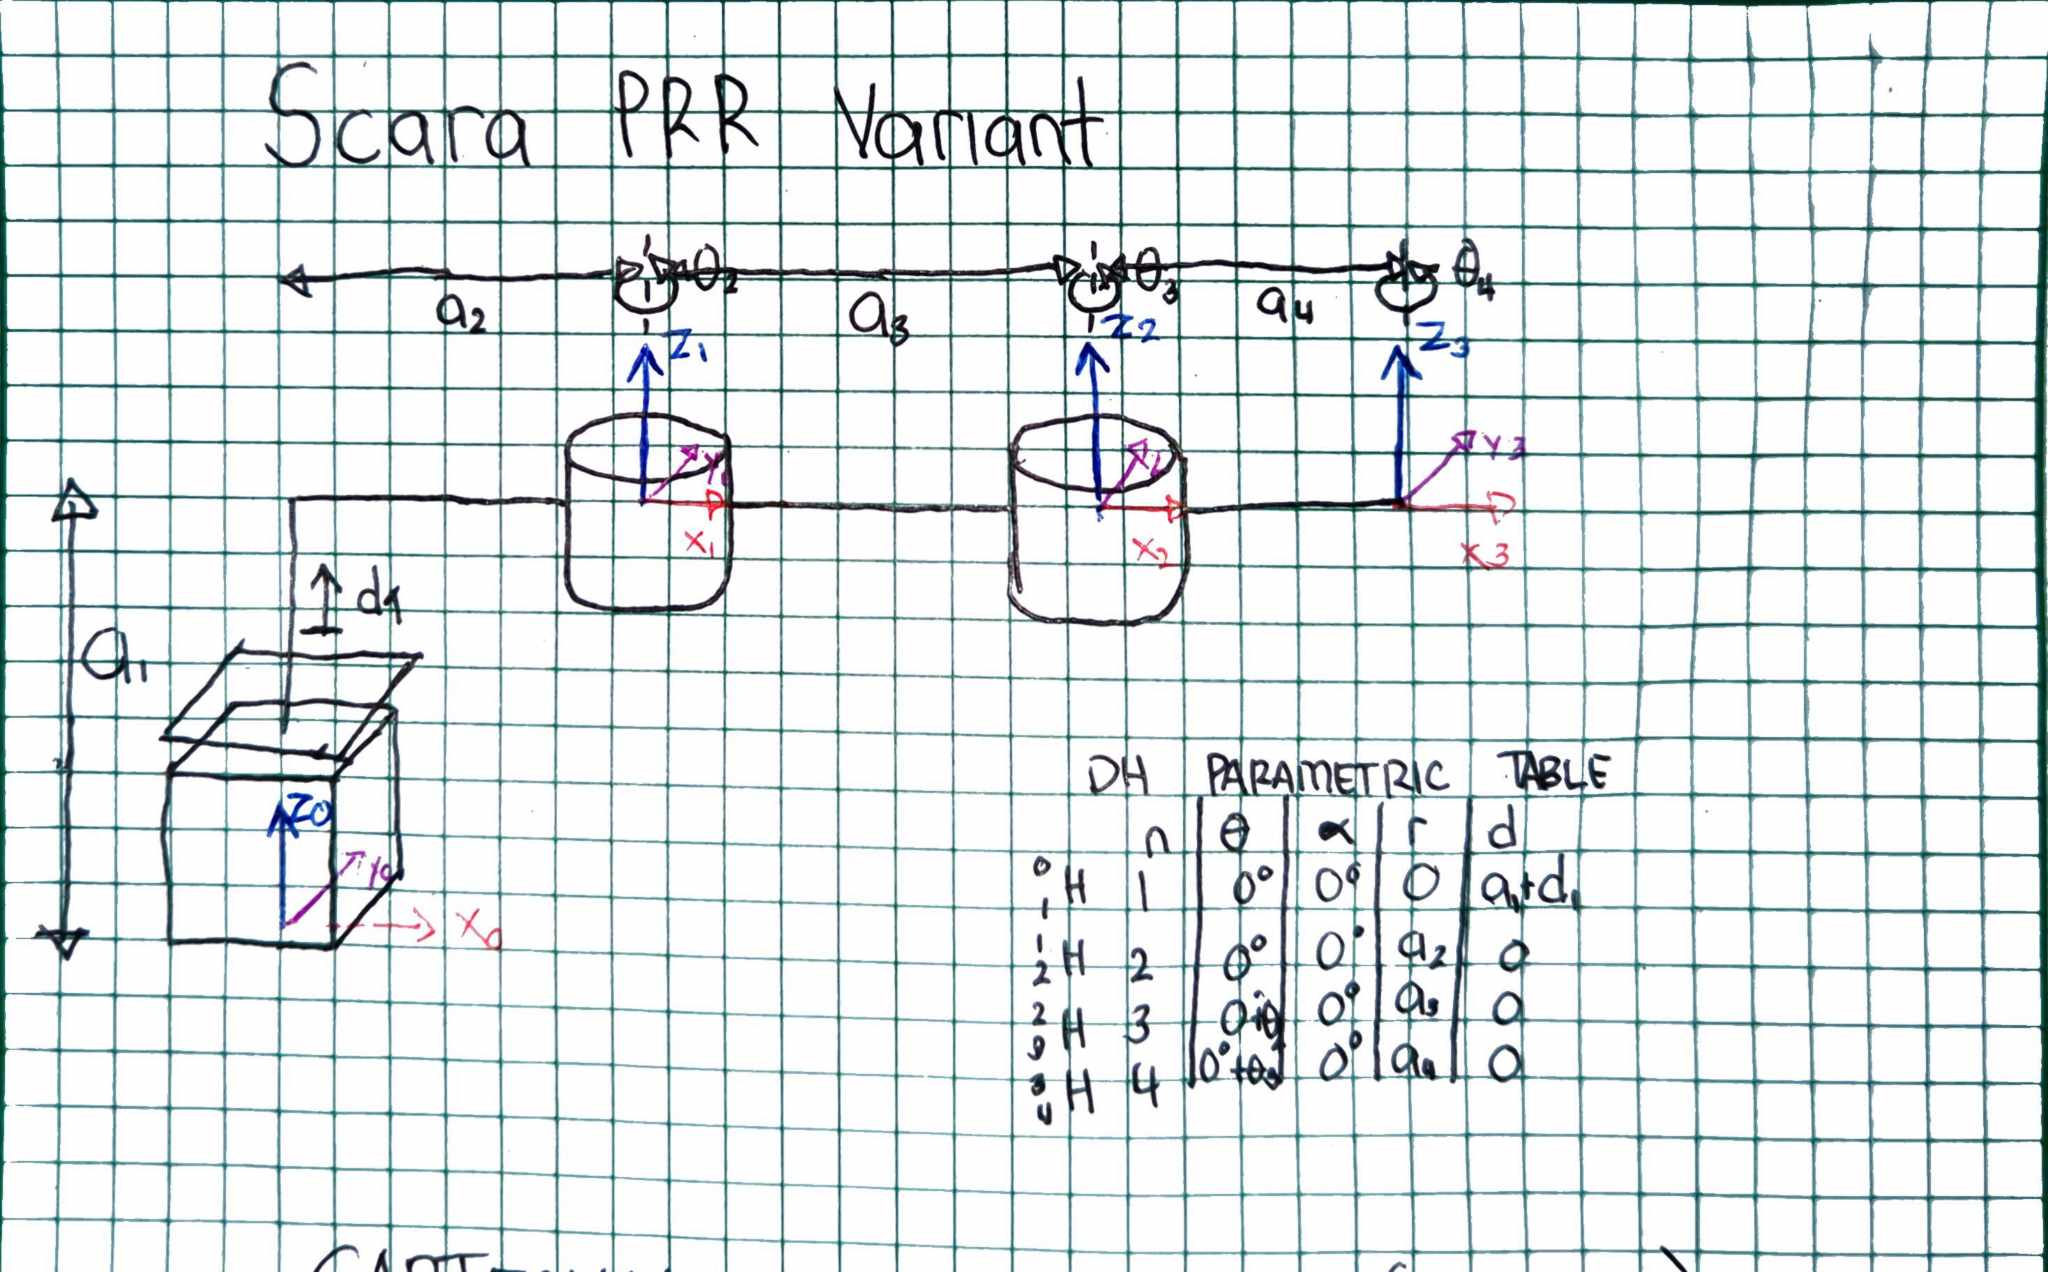 Scara PRR Variant
a2 θ2 a3 θ3 a4 θ4
Z1 Z2 Z3
Y3
X1 X2 X3
d1
a1
Z0
X0
DH PARAMETRIC TABLE
n θ α r d
0 1 H 1 0° 0° 0 a1+d1
1 2 H 2 0° 0° a2 0
2 3 H 3 0° a3 0
3 4 H 4 0° 0° a4 0